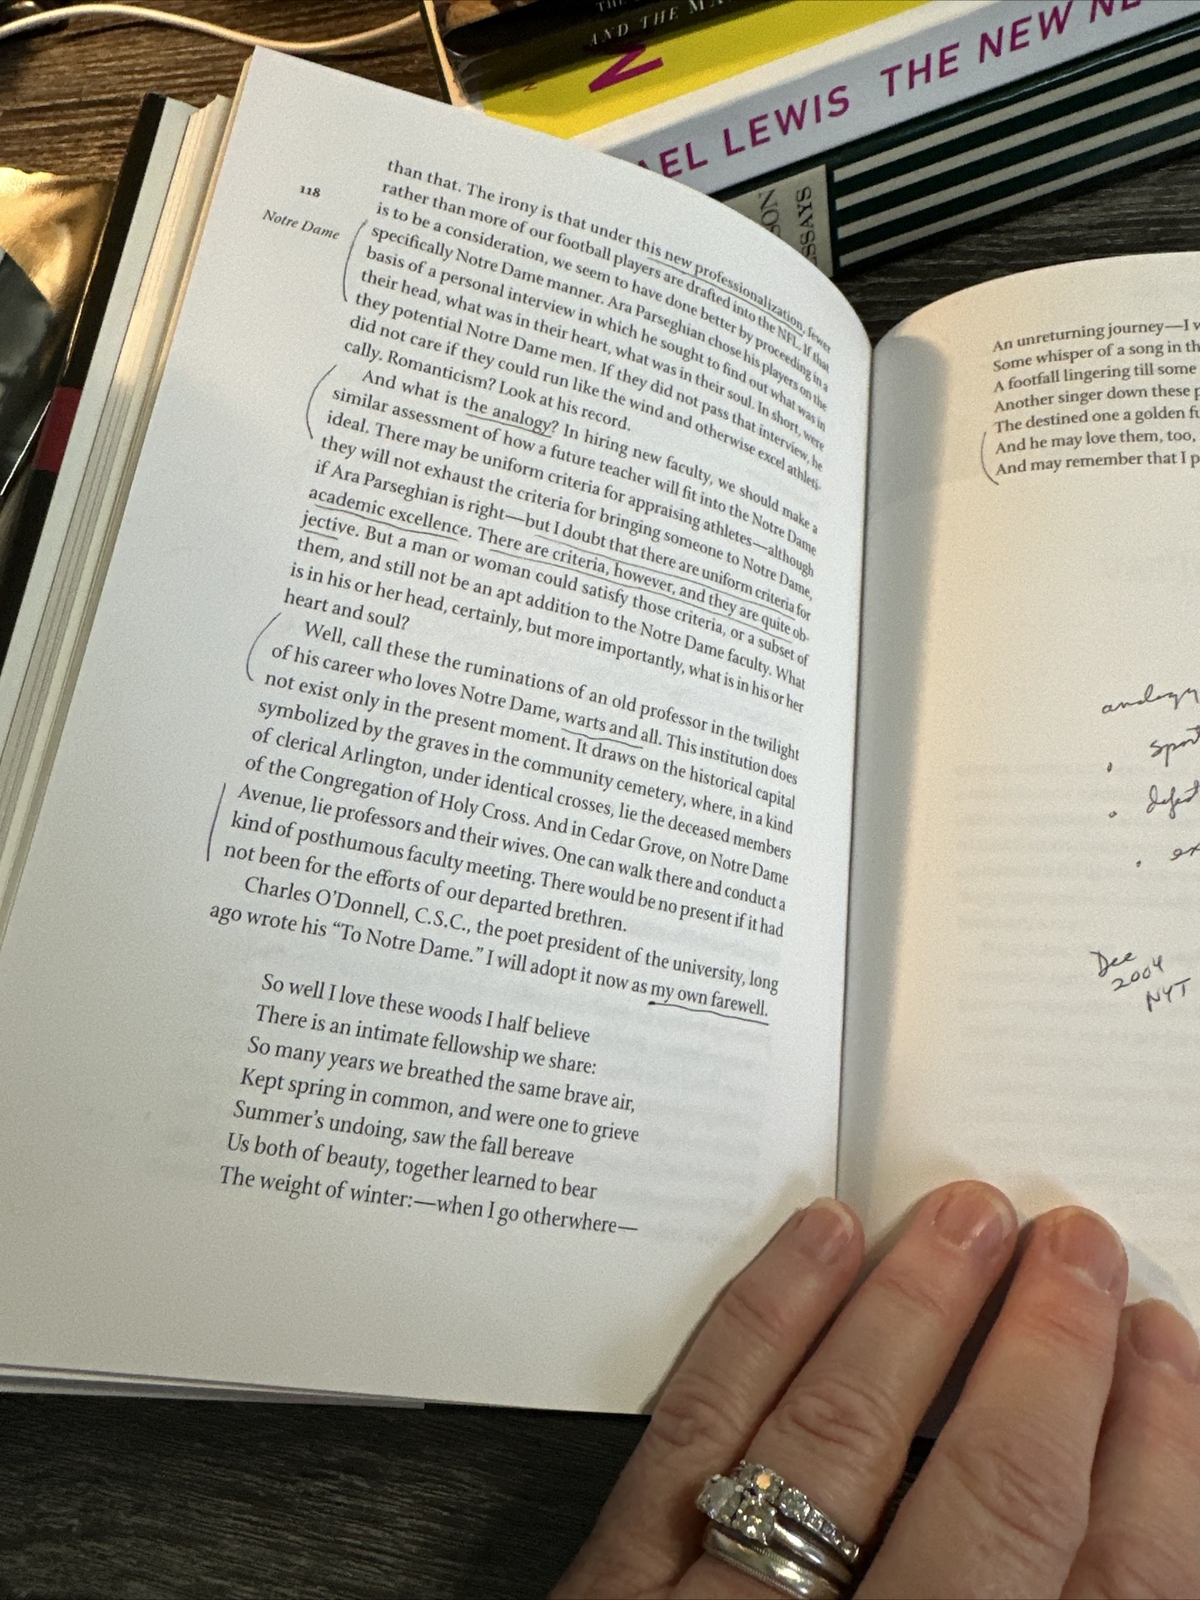 AND THE
AEL LEWIS THE NEW NE
SON
ESSAYS
118
Notre Dame
than that. The irony is that under this new professionalization, fewer
rather than more of our football players are drafted into the NFL. If that
is to be a consideration, we seem to have done better by proceeding in a
specifically Notre Dame manner. Ara Parseghian chose his players on the
basis of a personal interview in which he sought to find out what was in
their head, what was in their heart, what was in their soul. In short, were
they potential Notre Dame men. If they did not pass that interview, he
did not care if they could run like the wind and otherwise excel athleti-
cally. Romanticism? Look at his record.
And what is the analogy? In hiring new faculty, we should make a
similar assessment of how a future teacher will fit into the Notre Dame
ideal. There may be uniform criteria for appraising athletes—although
they will not exhaust the criteria for bringing someone to Notre Dame,
if Ara Parseghian is right—but I doubt that there are uniform criteria for
academic excellence. There are criteria, however, and they are quite ob-
jective. But a man or woman could satisfy those criteria, or a subset of
them, and still not be an apt addition to the Notre Dame faculty. What
is in his or her head, certainly, but more importantly, what is in his or her
heart and soul?
Well, call these the ruminations of an old professor in the twilight
of his career who loves Notre Dame, warts and all. This institution does
not exist only in the present moment. It draws on the historical capital
symbolized by the graves in the community cemetery, where, in a kind
of clerical Arlington, under identical crosses, lie the deceased members
of the Congregation of Holy Cross. And in Cedar Grove, on Notre Dame
Avenue, lie professors and their wives. One can walk there and conduct a
kind of posthumous faculty meeting. There would be no present if it had
not been for the efforts of our departed brethren.
Charles O’Donnell, C.S.C., the poet president of the university, long
ago wrote his “To Notre Dame.” I will adopt it now as my own farewell.
So well I love these woods I half believe
There is an intimate fellowship we share:
So many years we breathed the same brave air,
Kept spring in common, and were one to grieve
Summer’s undoing, saw the fall bereave
Us both of beauty, together learned to bear
The weight of winter:—when I go otherwhere—
An unreturning journey—I
Some whisper of a song in th
A footfall lingering till some
Another singer down these
The destined one a golden fu
And he may love them, too,
And may remember that I p
analogy
Dec
2004
NYT